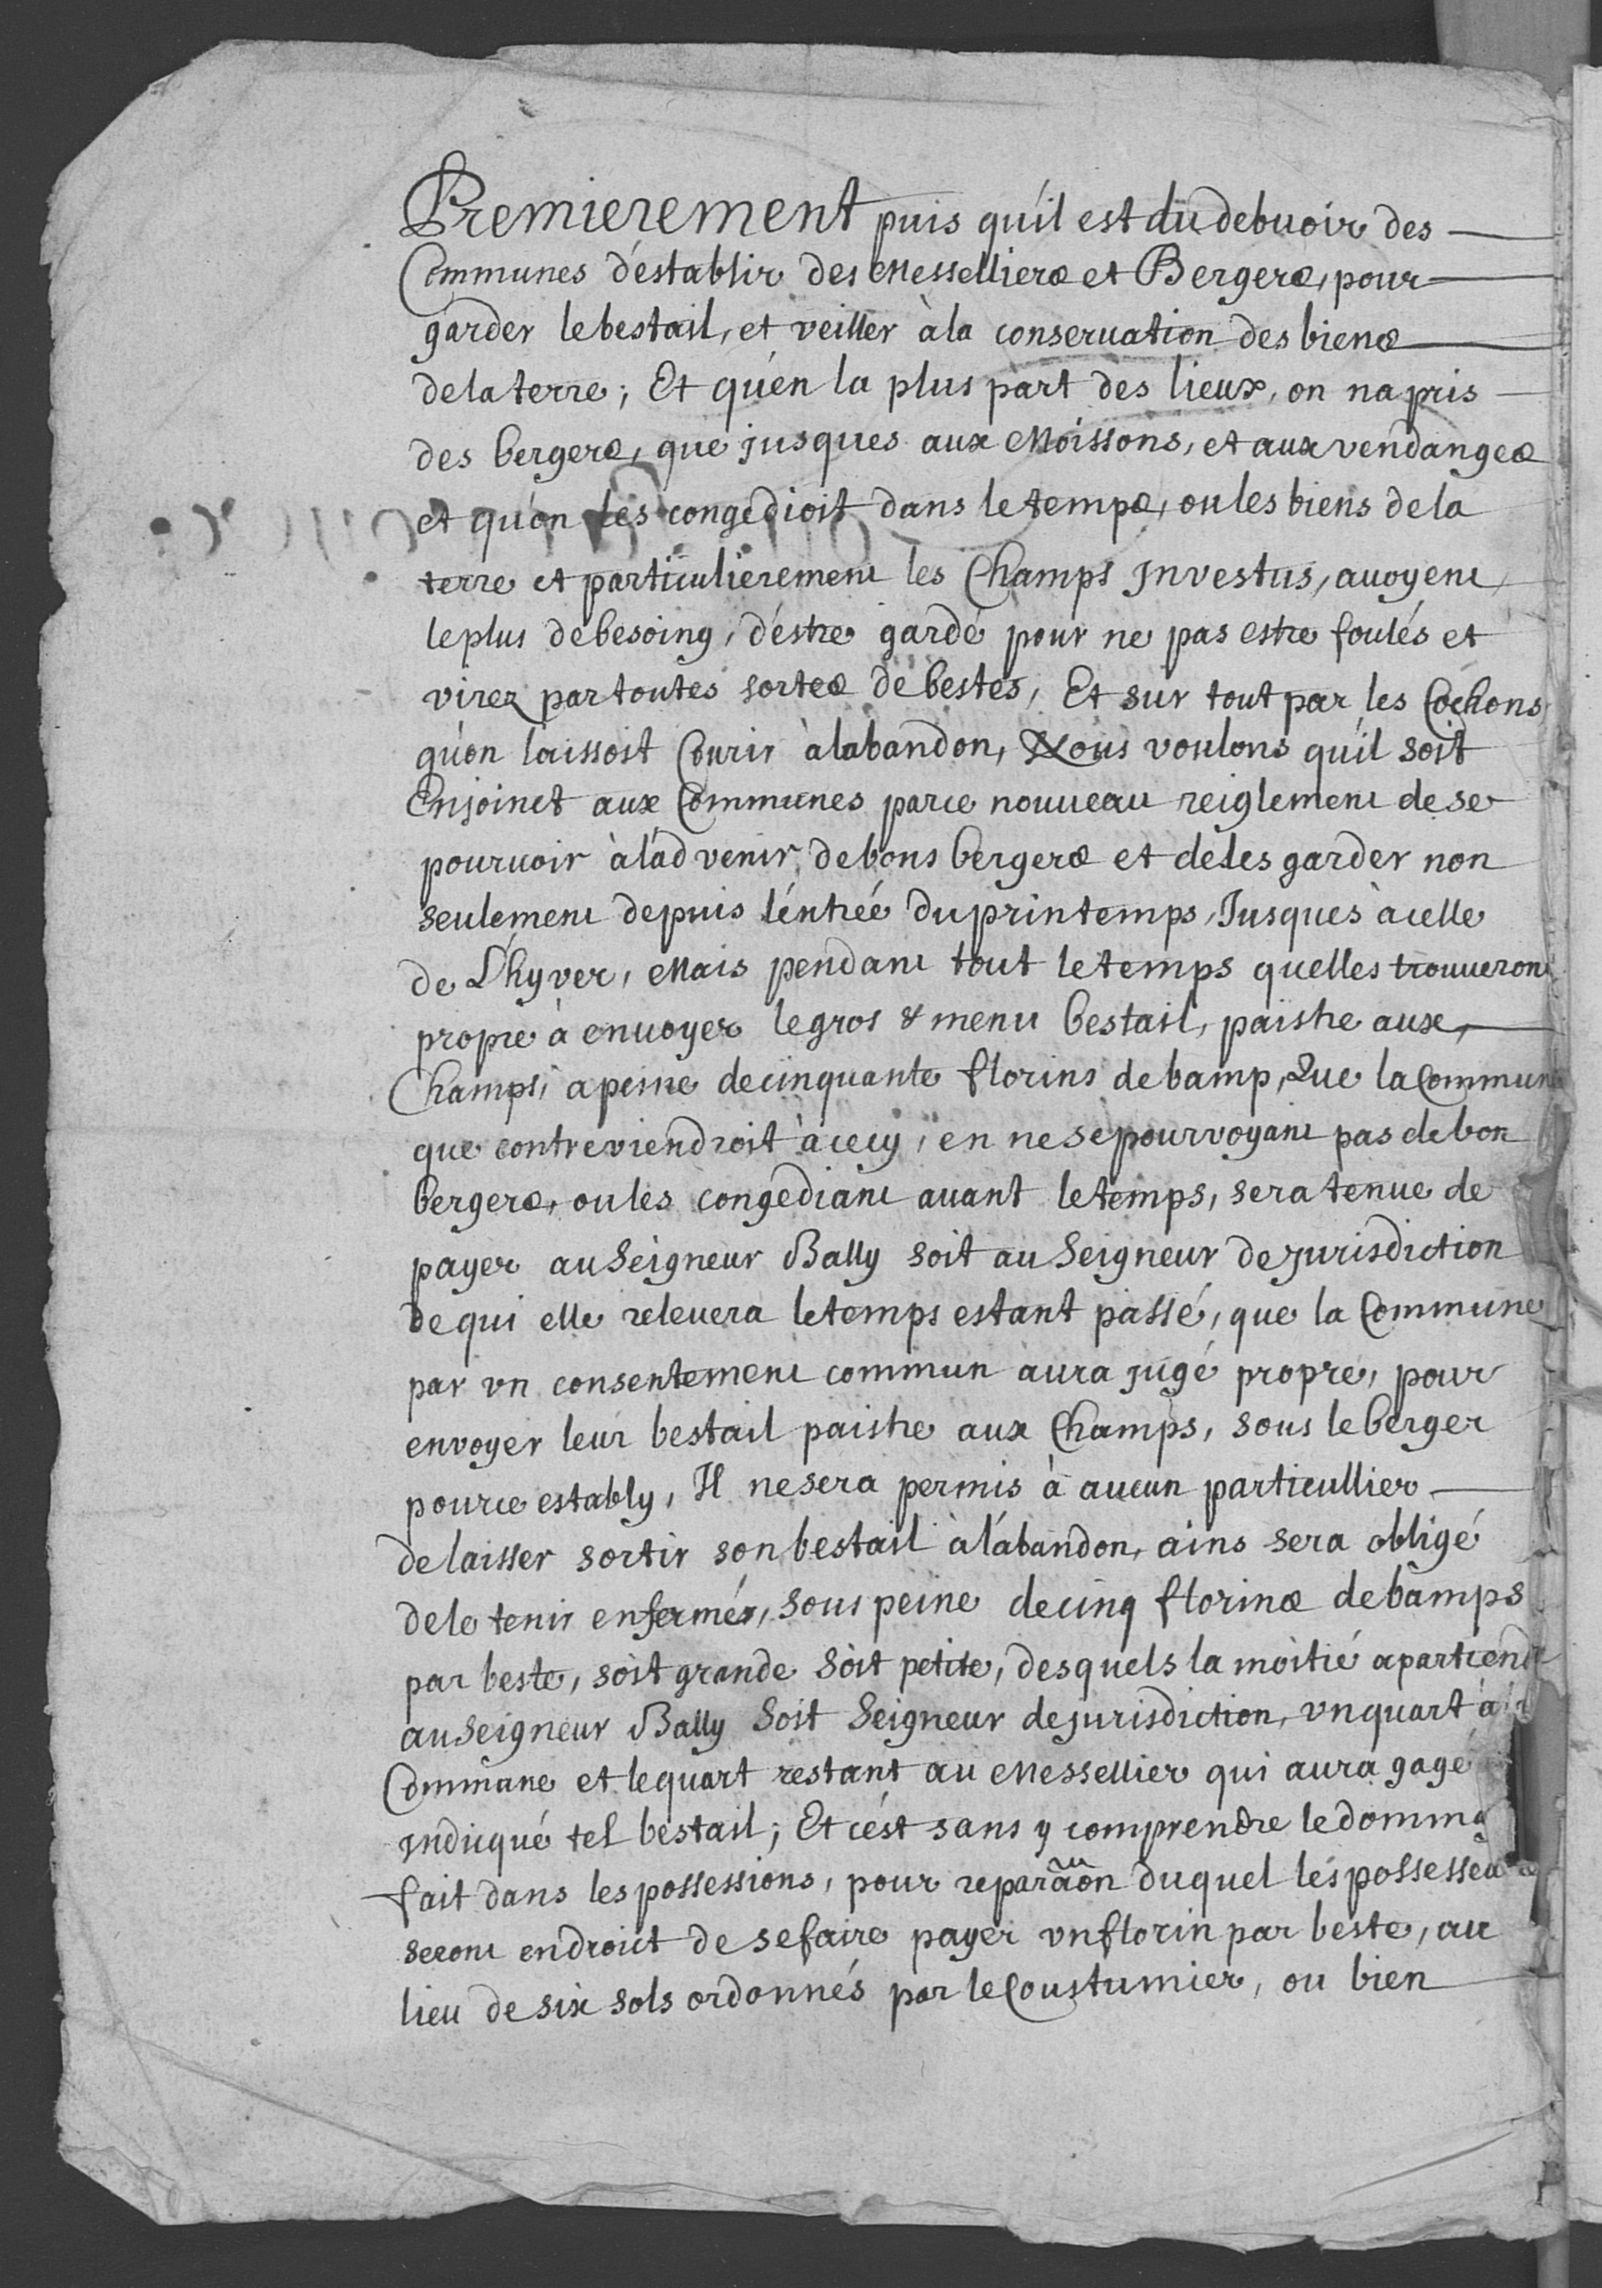 Premierement puis qu'il est du debuoir des
Communes d'establir des Messelliers et Bergers, pour
garder le bestail, et veiller à la conseruation des biens
de la terre; Et qu'en la plus part des lieux, on na pris
des bergers, que jusques aux Moissons, et aux vendanges
et qu'on les congedioit dans le temps, ou les biens de la
terre et particulierement les Champs Investus, auoyent
le plus de besoing, d'estre gardé pour ne pas estre foulés et
virez par toutes sortes de bestes, Et sur tout par les Cochons
qu'on laissoit Courir à labandon, Nous voulons qu'il soit
Enjoinct aux Communes par ce nouueau reiglement de se
pouruoir à l'advenir de bons bergers et de les garder non
seulement depuis l'entreé du printemps, Jusques à celle
de L'hyver, Mais pendant tout le temps quelles trouueront
propre à enuoyer le gros & menu bestail, paistre aux
Champs, a peine de cinquante florins de bamp, Que la Commune
que contreviendroit à cecy, en ne se pourvoyant pas de bon
bergers, ou les congediant auant le temps, sera tenue de
payer au Seigneur Bally soit au Seigneur de jurisdiction
de qui elle releuera le temps estant passé, que la Commune
par vn consentement commun aura jugé propre, pour
envoyer leur bestail paistre aux Champs, sous le berger
pour ce estably, Il ne sera permis à aucun particullier
de laisser sortir son bestail à l'abandon, ains sera obligé
de le tenir enfermés, sous peine de cinq florins de bamps
par beste, soit grande soit petite, desquels la moitié apartiendr
au Seigneur Bally soit Seigneur de jurisdiction, vn quart à la
Commune et le quart restant au Messellier qui aura gagé
indicqué tel bestail; Et c'est sans y comprendre le dommg
fait dans les possessions, pour reparãon duquel les possesseurs
seront en droict de se faire payer vn florin par beste, au
lieu de six sols ordonnés par le Coustumier, ou bien